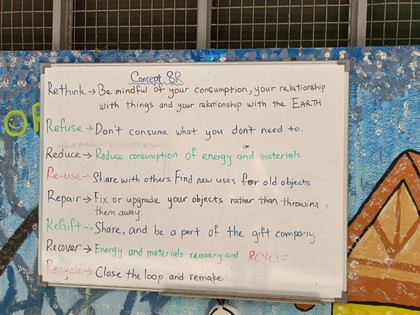 Concept 8R
Rethink → Be mindful of your consumption, your relationship
with things and your relationship with the EARTH
Refuse → Don't consume what you don't need to.
Reduce → Reduce consumption of energy and materials
Re-use → Share with others. Find new uses for old objects
Repair → Fix or upgrade your objects rather than throwing
them away
ReGift → Share, and be a part of the gift company
Recover → Energy and materials recovery and
Recycle → Close the loop and remake